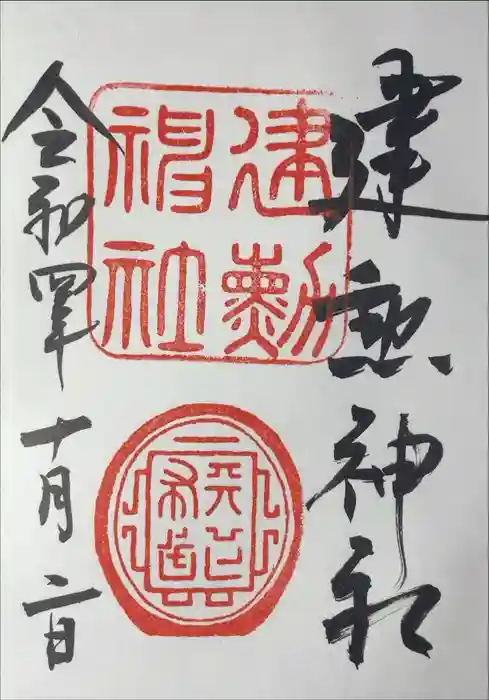 建勲神社
建勲
神社
令和四年十月二日